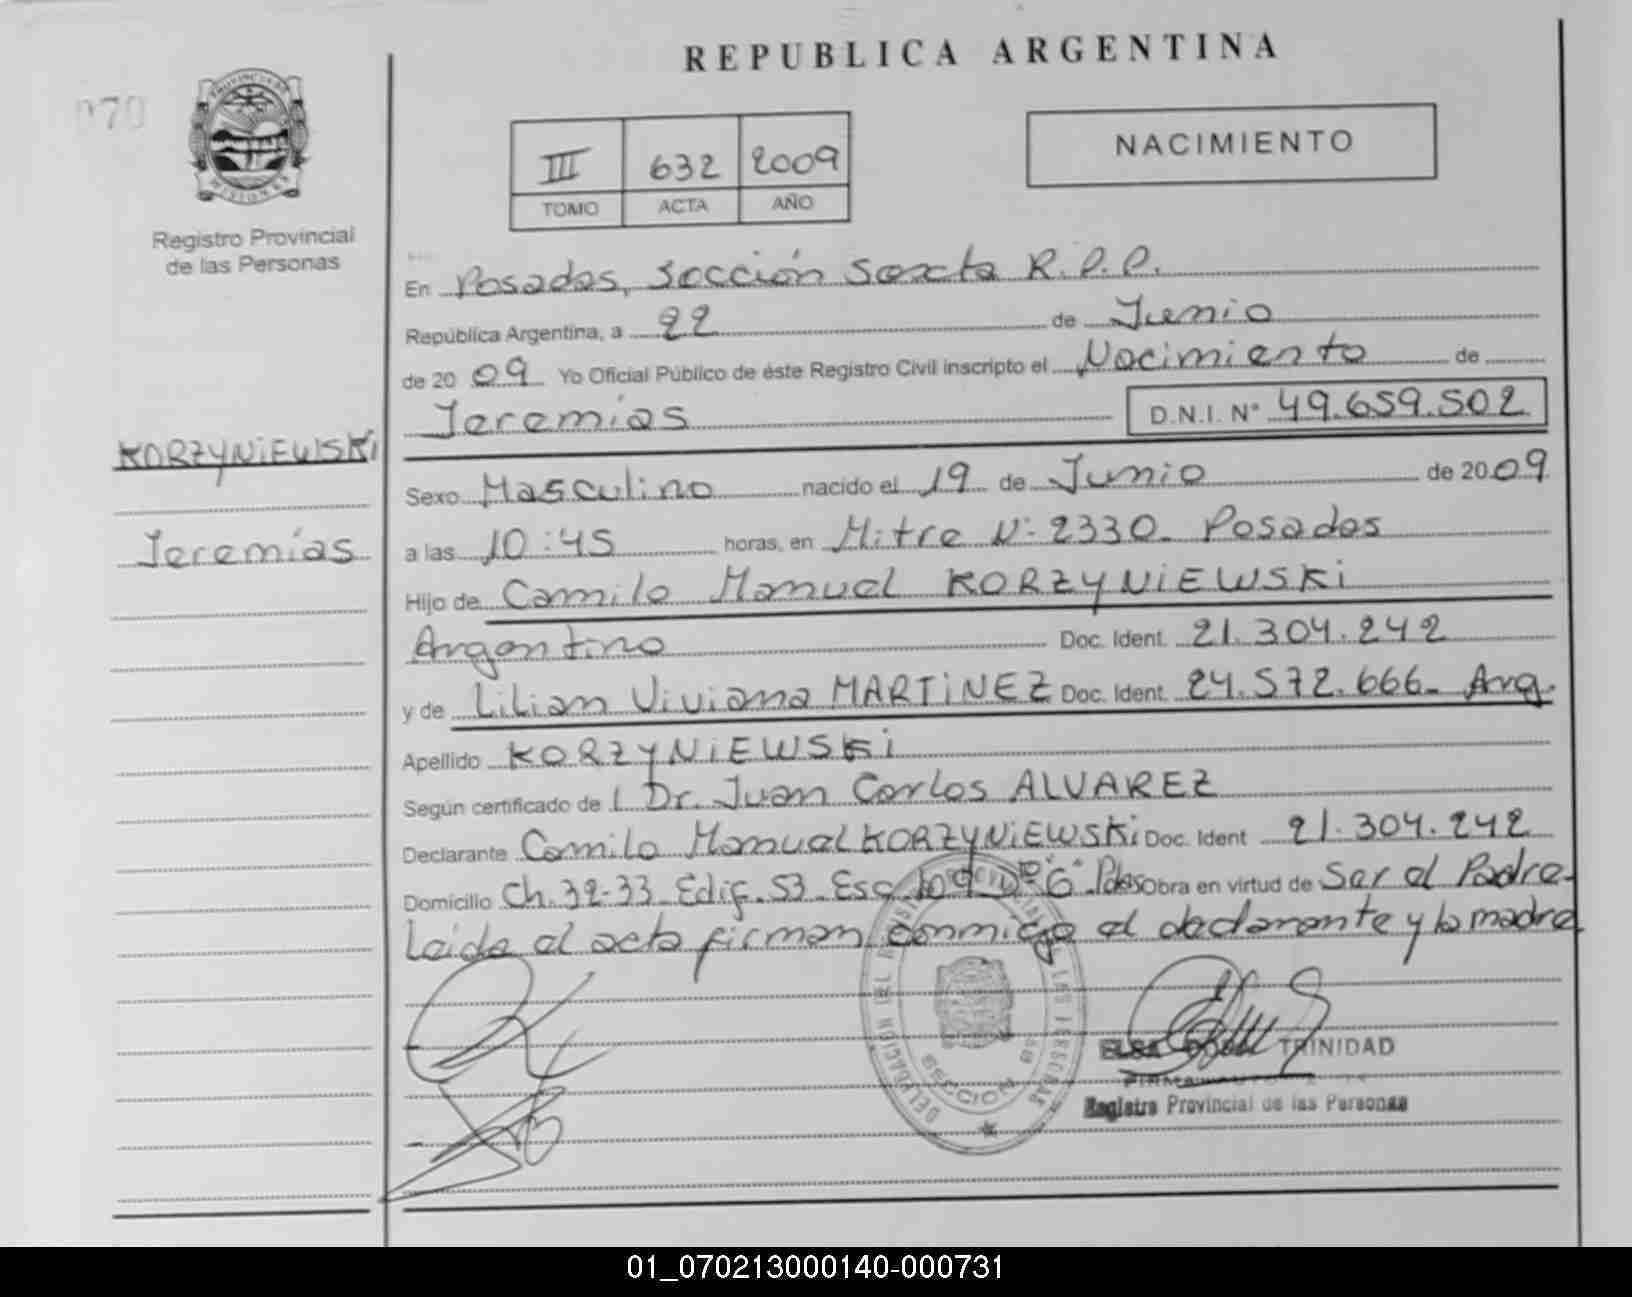 REPUBLICA ARGENTINA
070
PROVINCIA DE
MISIONES
Registro Provincial
de las Personas
III 632 2009
TOMO ACTA AÑO
NACIMIENTO
En Posadas, Sección Sexta R.P.P.
República Argentina, a 22 de Junio
de 2009 Yo Oficial Público de éste Registro Civil inscripto el Nacimiento de
Jeremías D.N.I. N° 49.659.502
KORZYNIEWSKI
Jeremías
Sexo Masculino nacido el 19 de Junio de 2009
a las 10:45 horas, en Mitre N: 2330_ Posadas
Hijo de Camilo Manuel KORZYNIEWSKI
Argentino Doc. Ident. 21.304.242
y de Lilian Viviana MARTINEZ Doc. Ident. 24.572.666_ Arg.
Apellido KORZYNIEWSKI
Según certificado de l Dr. Juan Carlos ALVAREZ
Declarante Camilo Manuel KORZYNIEWSKI Doc. Ident 21.304.242
Domicilio Ch. 32-33_ Edif. 53_ Esc. 109_ D° "6" Pdas Obra en virtud de Ser el Padre_
Leída el acta firman conmigo el declarante y la madre
ELSA TRINIDAD
Registro Provincial de las Personas
SECCION
01_070213000140-000731